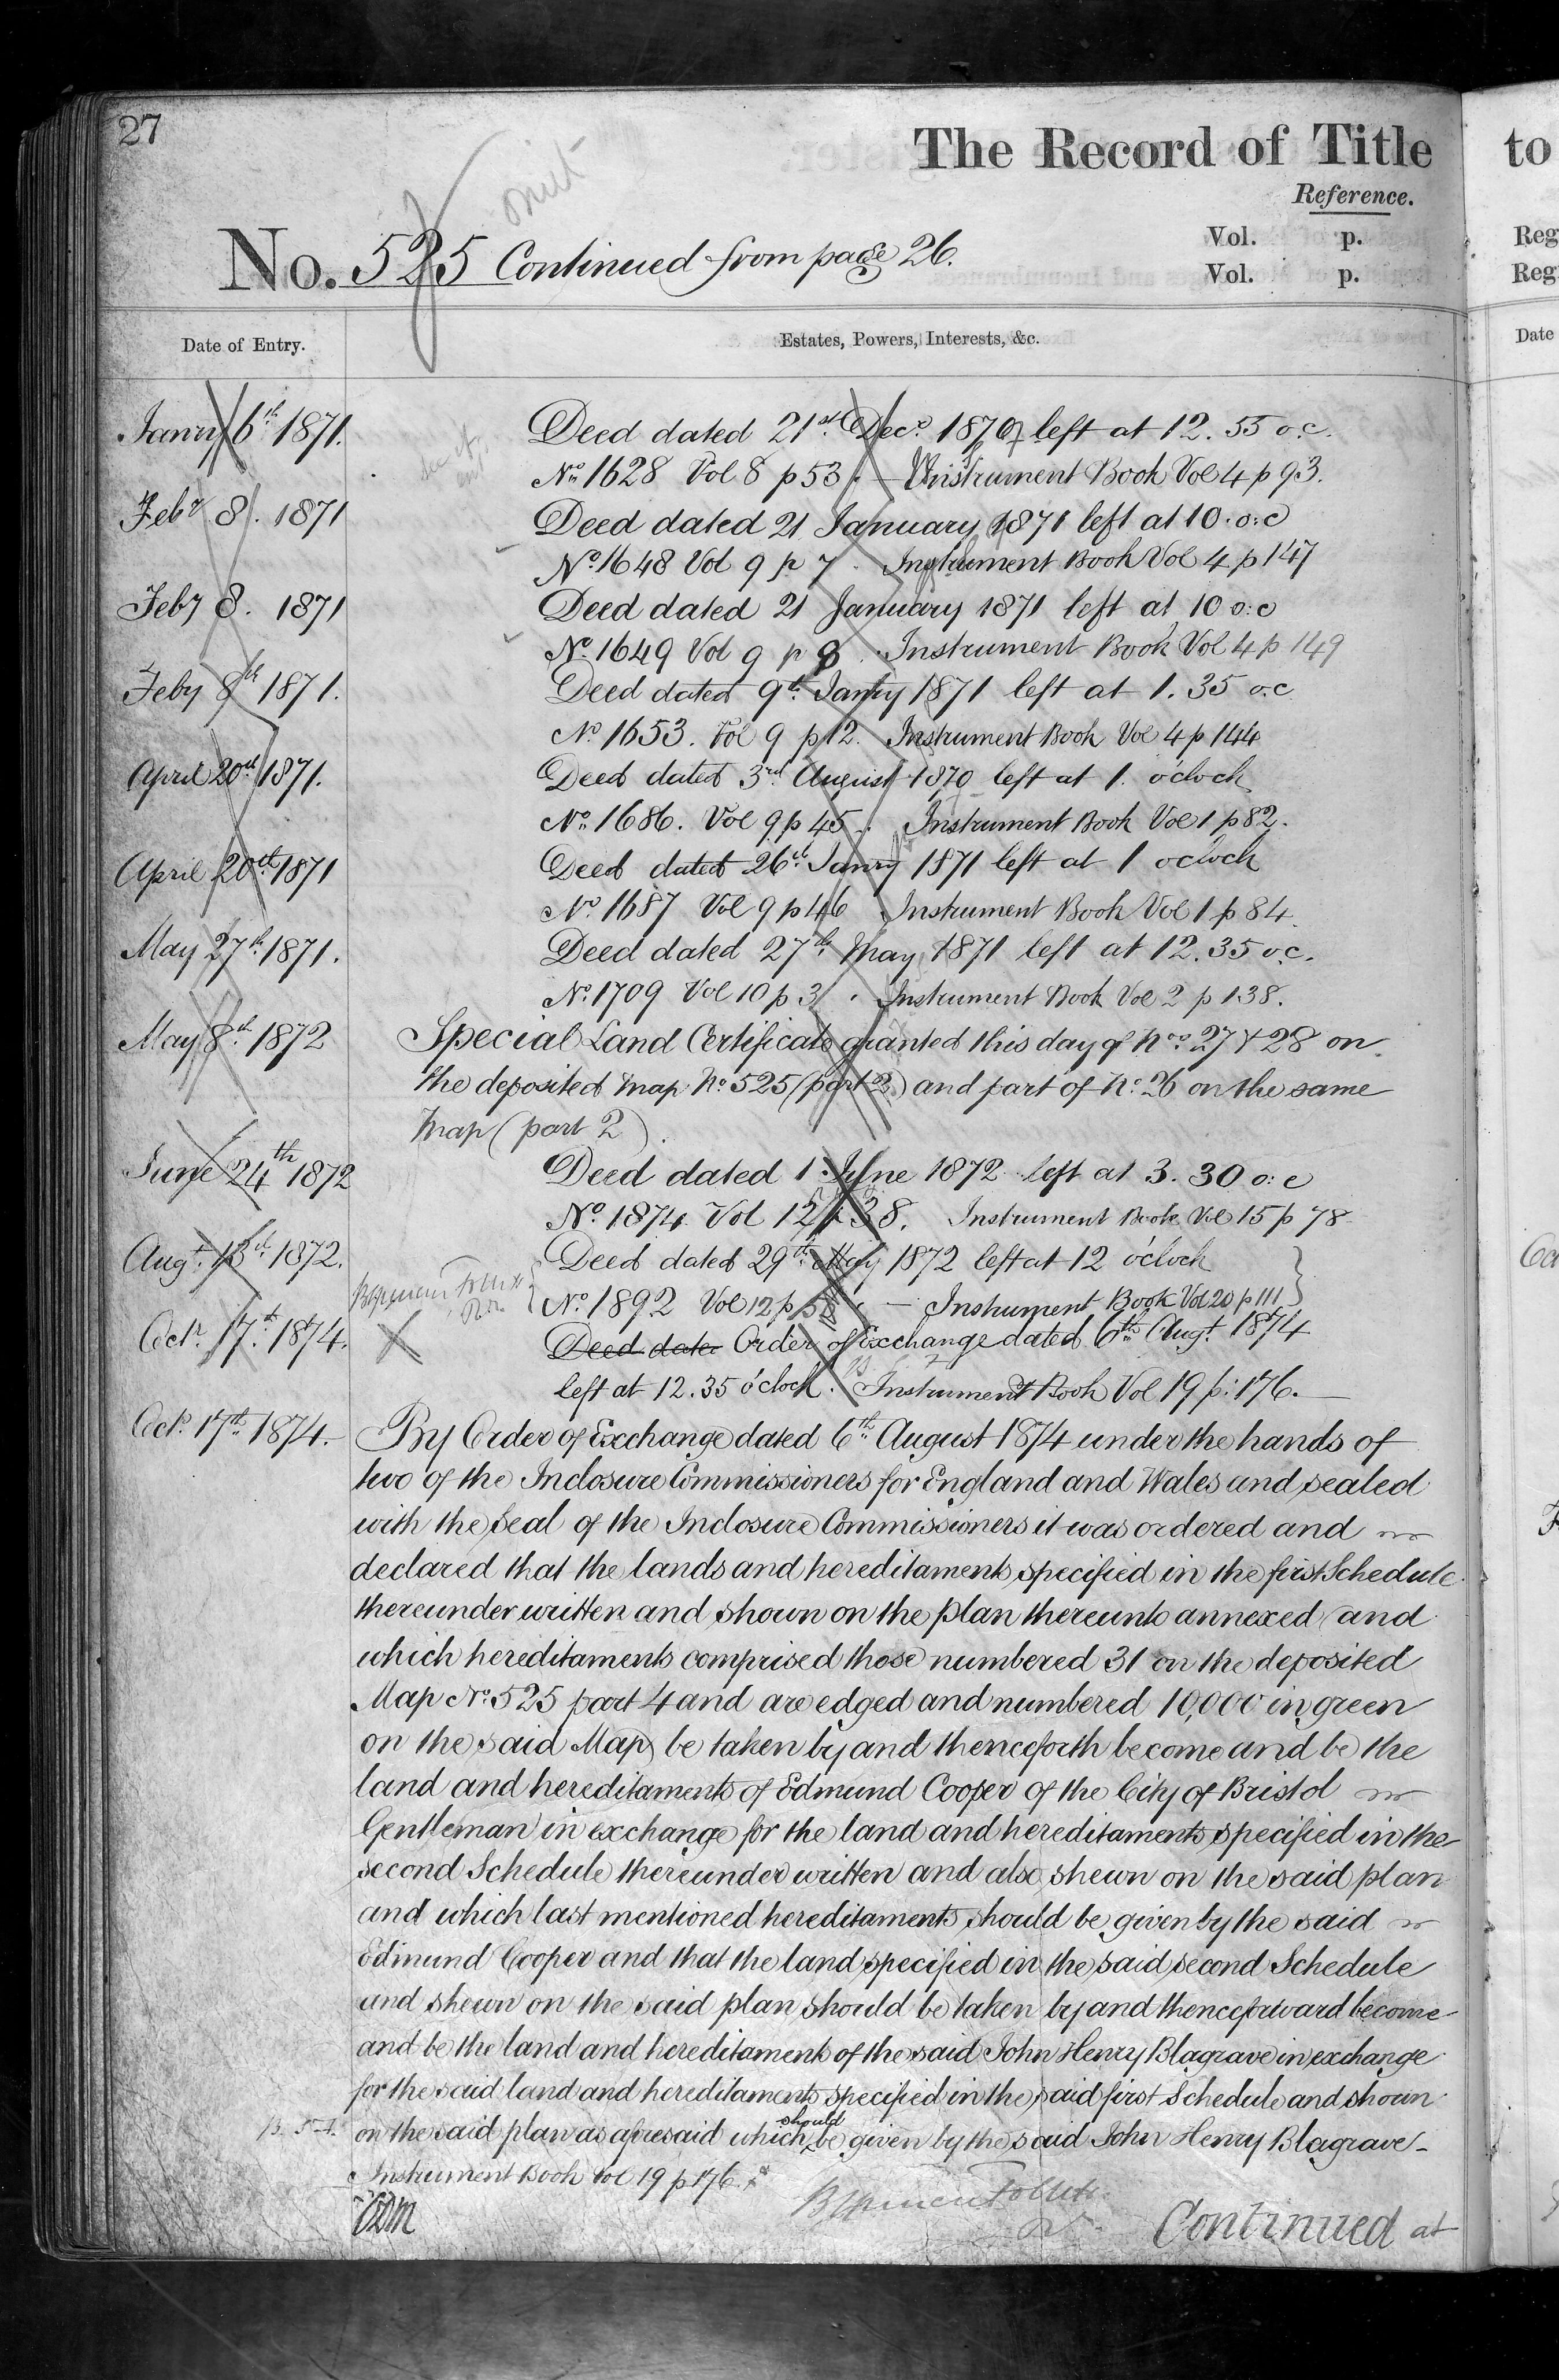 27
The Record of Title
to
Reference.
omit
No. 525 Continued from page 26.
Vol. p.
Reg
Vol. p.
Reg
Date of Entry.
Estates, Powers, Interests, &c.
Date
Janry 6th 1871.
Deed dated 21st Decr 1870 left at 12.55 o.c.
No 1628 Vol 8 p 53. — Instrument Book Vol 4 p 93.
Feby 8. 1871
Deed dated 21 January 1871 left at 10. o:c
No 1648 Vol 9 p 7. Instrument Book Vol 4 p 147
Feby 8. 1871
Deed dated 21 January 1871 left at 10 o:c
No 1649 Vol 9 p 8. Instrument Book Vol 4 p 149
Feby 8th 1871.
Deed dated 9th Janry 1871 left at 1.35 o.c
No 1653. Vol 9 p 12. Instrument Book Vol 4 p 144
April 20th 1871.
Deed dated 3rd August 1870 left at 1. o'clock
No 1686. Vol 9 p 45. Instrument Book Vol 1 p 82.
April 20th 1871
Deed dated 26th Janry 1871 left at 1 o'clock
No 1687 Vol 9 p 46 Instrument Book Vol 1 p 84.
May 27th 1871.
Deed dated 27th May 1871 left at 12.35 o.c.
No 1709 Vol 10 p 3. Instrument Book Vol 2 p 138.
May 8th 1872
Special Land Certificate granted this day of Nos 27 & 28 on
the deposited Map No 525 (part 2) and part of No 26 on the same
Map (part 2).
June 24th 1872
Deed dated 1 June 1872 left at 3.30 o:c
No 1874 Vol 12 p 38. Instrument Book Vol 15 p 78
Augt 13th 1872.
Deed dated 29th May 1872 left at 12 o'clock
No 1892 Vol 12 p 58. — Instrument Book Vol 20 p 111
Octr 17th 1874.
Deed date Order of Exchange dated 6th Augt 1874
left at 12.35 o'clock. Instrument Book Vol 19 p: 176.
Octr 17th 1874.
By Order of Exchange dated 6th August 1874 under the hands of
two of the Inclosure Commissioners for England and Wales and sealed
with the Seal of the Inclosure Commissioners it was ordered and
declared that the lands and hereditaments specified in the first Schedule
thereunder written and shown on the plan thereunto annexed (and
which hereditaments comprised those numbered 31 on the deposited
Map No 525 part 4 and are edged and numbered 10,000 in green
on the said Map) be taken by and thenceforth become and be the
land and hereditaments of Edmund Cooper of the City of Bristol
Gentleman in exchange for the land and hereditaments specified in the
second Schedule thereunder written and also shewn on the said plan
and which last mentioned hereditaments should be given by the said
Edmund Cooper and that the land specified in the said second Schedule
and shewn on the said plan should be taken by and thenceforward become
and be the land and hereditaments of the said John Henry Blagrave in exchange
for the said land and hereditaments specified in the said first Schedule and shown
on the said plan as aforesaid which should be given by the said John Henry Blagrave
Instrument Book Vol 19 p 176.
Continued at